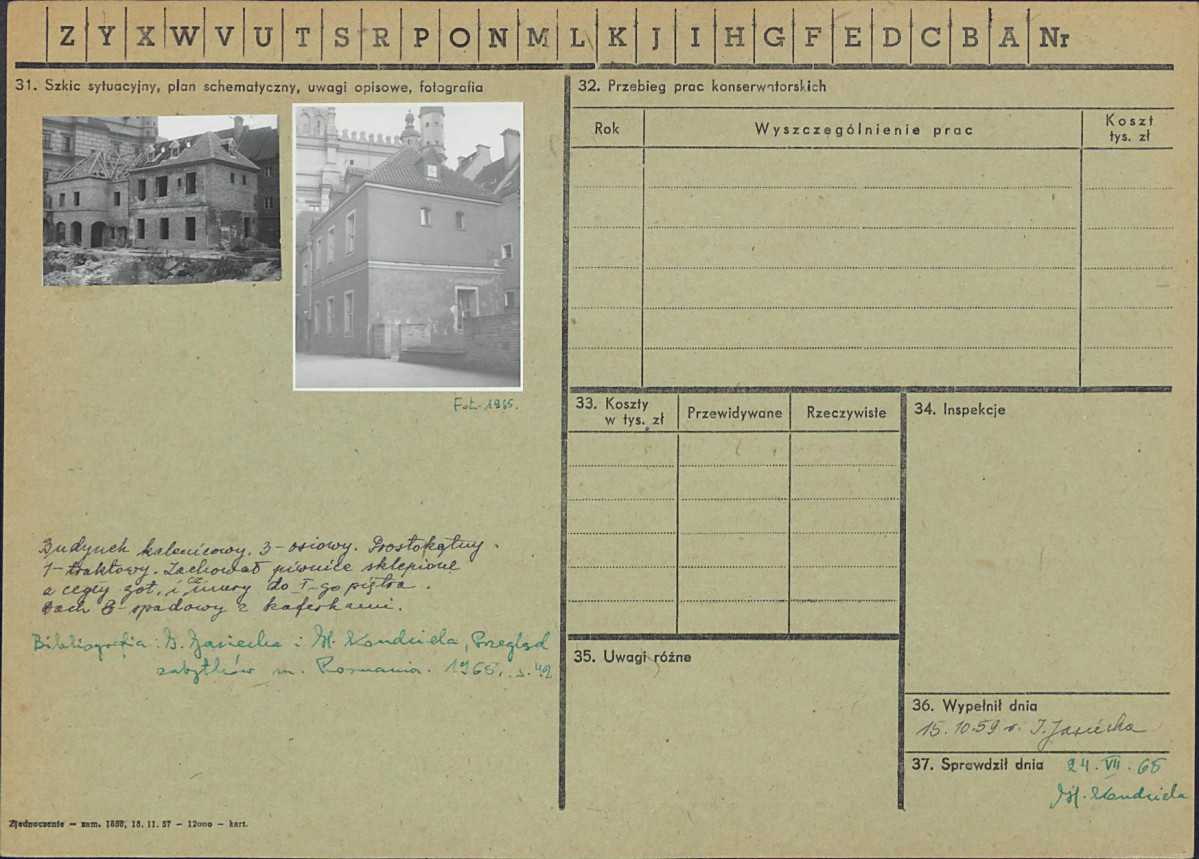 Z Y X W V U T S R P O N M L K J I H G F E D C B A Nr
31. Szkic sytuacyjny, plan schematyczny, uwagi opisowe, fotografia
Fot. 1965.
Budynek kalenicowy. 3-osiowy. Prostokątny.
1-traktowy. Zachował piwnice sklepione
z cegły got. i cz. mury do I-go piętra.
Dach 3-spadowy z kaferkami.
Bibliografia: I. Jasiecka i M. Kondziela, Przegląd
zabytków m. Poznania. 1965. s. 42
Zjednoczenie – zam. 1858, 18. 11. 57 – 12000 – kart.
32. Przebieg prac konserwatorskich
Rok Wyszczególnienie prac Koszt tys. zł
33. Koszty w tys. zł Przewidywane Rzeczywiste
34. Inspekcje
35. Uwagi różne
36. Wypełnił dnia
15.10.59 r. I. Jasiecka
37. Sprawdził dnia 24. VII. 65
M. Kondziela